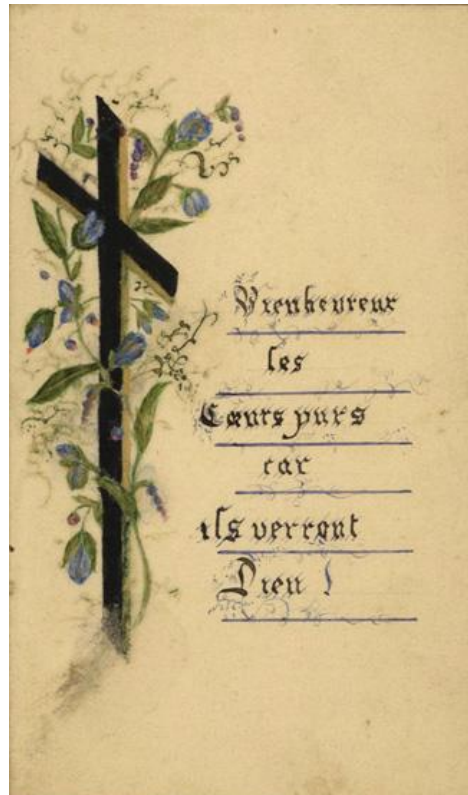 Bienheureux
les
Cœurs purs
car
ils verront
Dieu !